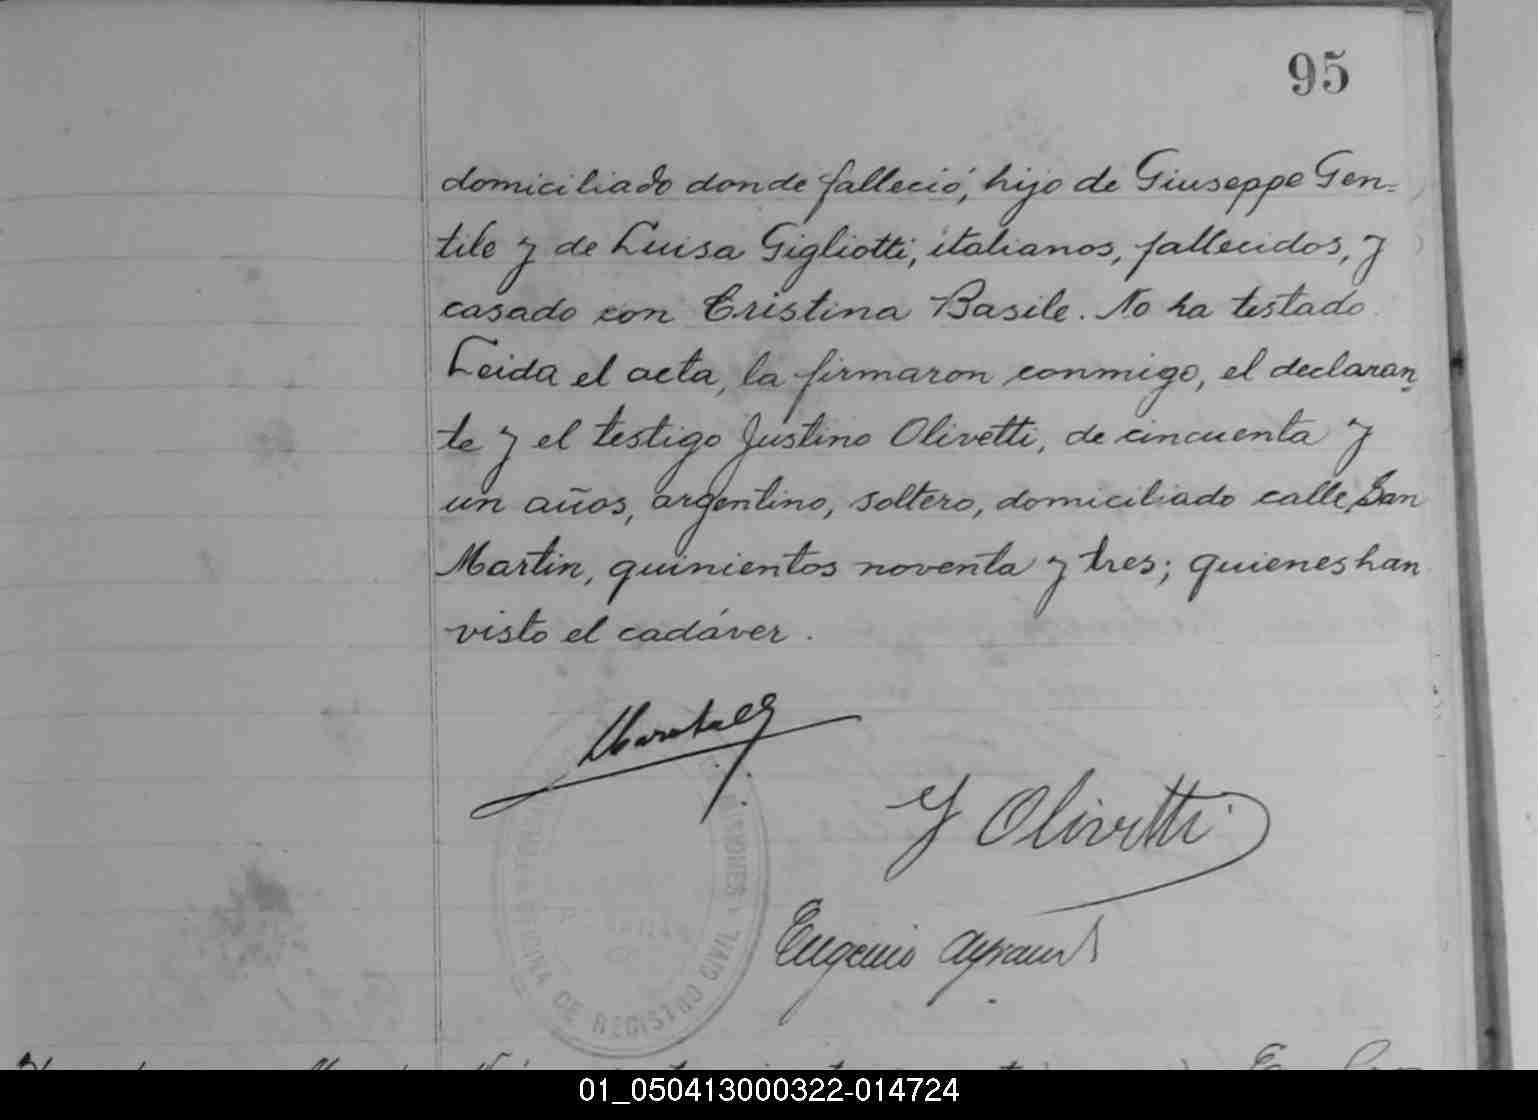 95
domiciliado donde falleció, hijo de Giuseppe Gen=
tile y de Luisa Gigliotti, italianos, fallecidos, y
casado con Cristina Basile. No ha testado.
Leida el acta, la firmaron conmigo, el declaran
te y el testigo Justino Olivetti, de cincuenta y
un años, argentino, soltero, domiciliado calle San
Martin, quinientos noventa y tres; quienes han
visto el cadáver.
J Olivetti
Eugenio
OFICINA DE REGISTRO CIVIL
01_050413000322-014724